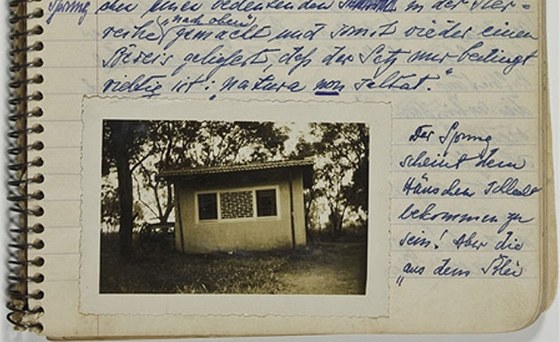 Sprung oder einen bedeutenden in der Tier=
(nach oben)
reihe gemacht und somit wieder einen
Beweis geliefert, daß der Satz nur bedingt
richtig ist: "natura non saltat."
Der Sprung
scheint dem
Häuschen schlecht
bekommen zu
sein! Aber die
"aus dem Blei